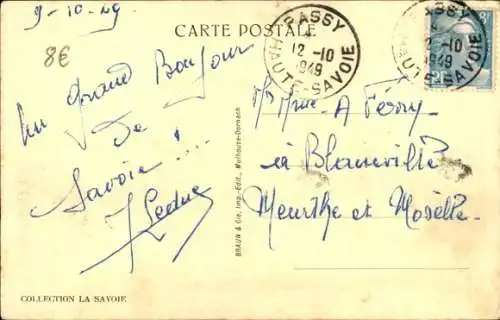 9-10-49
8€
CARTE POSTALE
PASSY
12-10
1949
HAUTE-SAVOIE
PASSY
12-10
1949
HAUTE-SAVOIE
Un Grand Bonjour
de
Savoie!..
Leduc
Mme A Ferry
à Blainville
Meurthe et Moselle
BRAUN & Cie, Imp.-Édit., Mulhouse-Dornach
COLLECTION LA SAVOIE